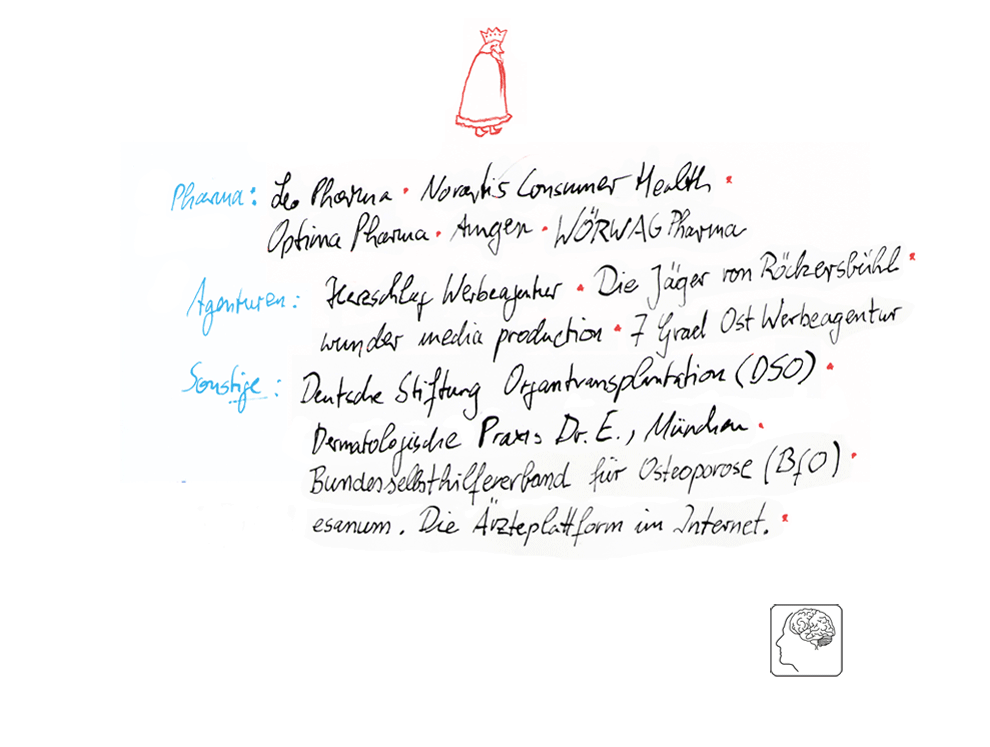 Pharma: Leo Pharma • Novartis Consumer Health •
Optima Pharma • Amgen • WÖRWAG Pharma
Agenturen: Herzschlag Werbeagentur • Die Jäger von Röckersbühl •
wunder media production • 7 Grad Ost Werbeagentur
Sonstige: Deutsche Stiftung Organtransplantation (DSO) •
Dermatologische Praxis Dr. E., München •
Bundesselbsthilfeverband für Osteoporose (BfO) •
esanum. Die Ärzteplattform im Internet. •